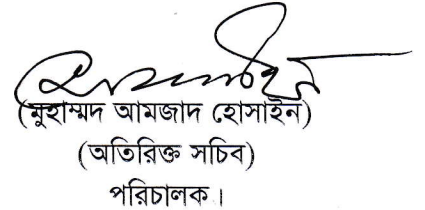 (মুহাম্মদ আমজাদ হোসাইন)
(অতিরিক্ত সচিব)
পরিচালক।